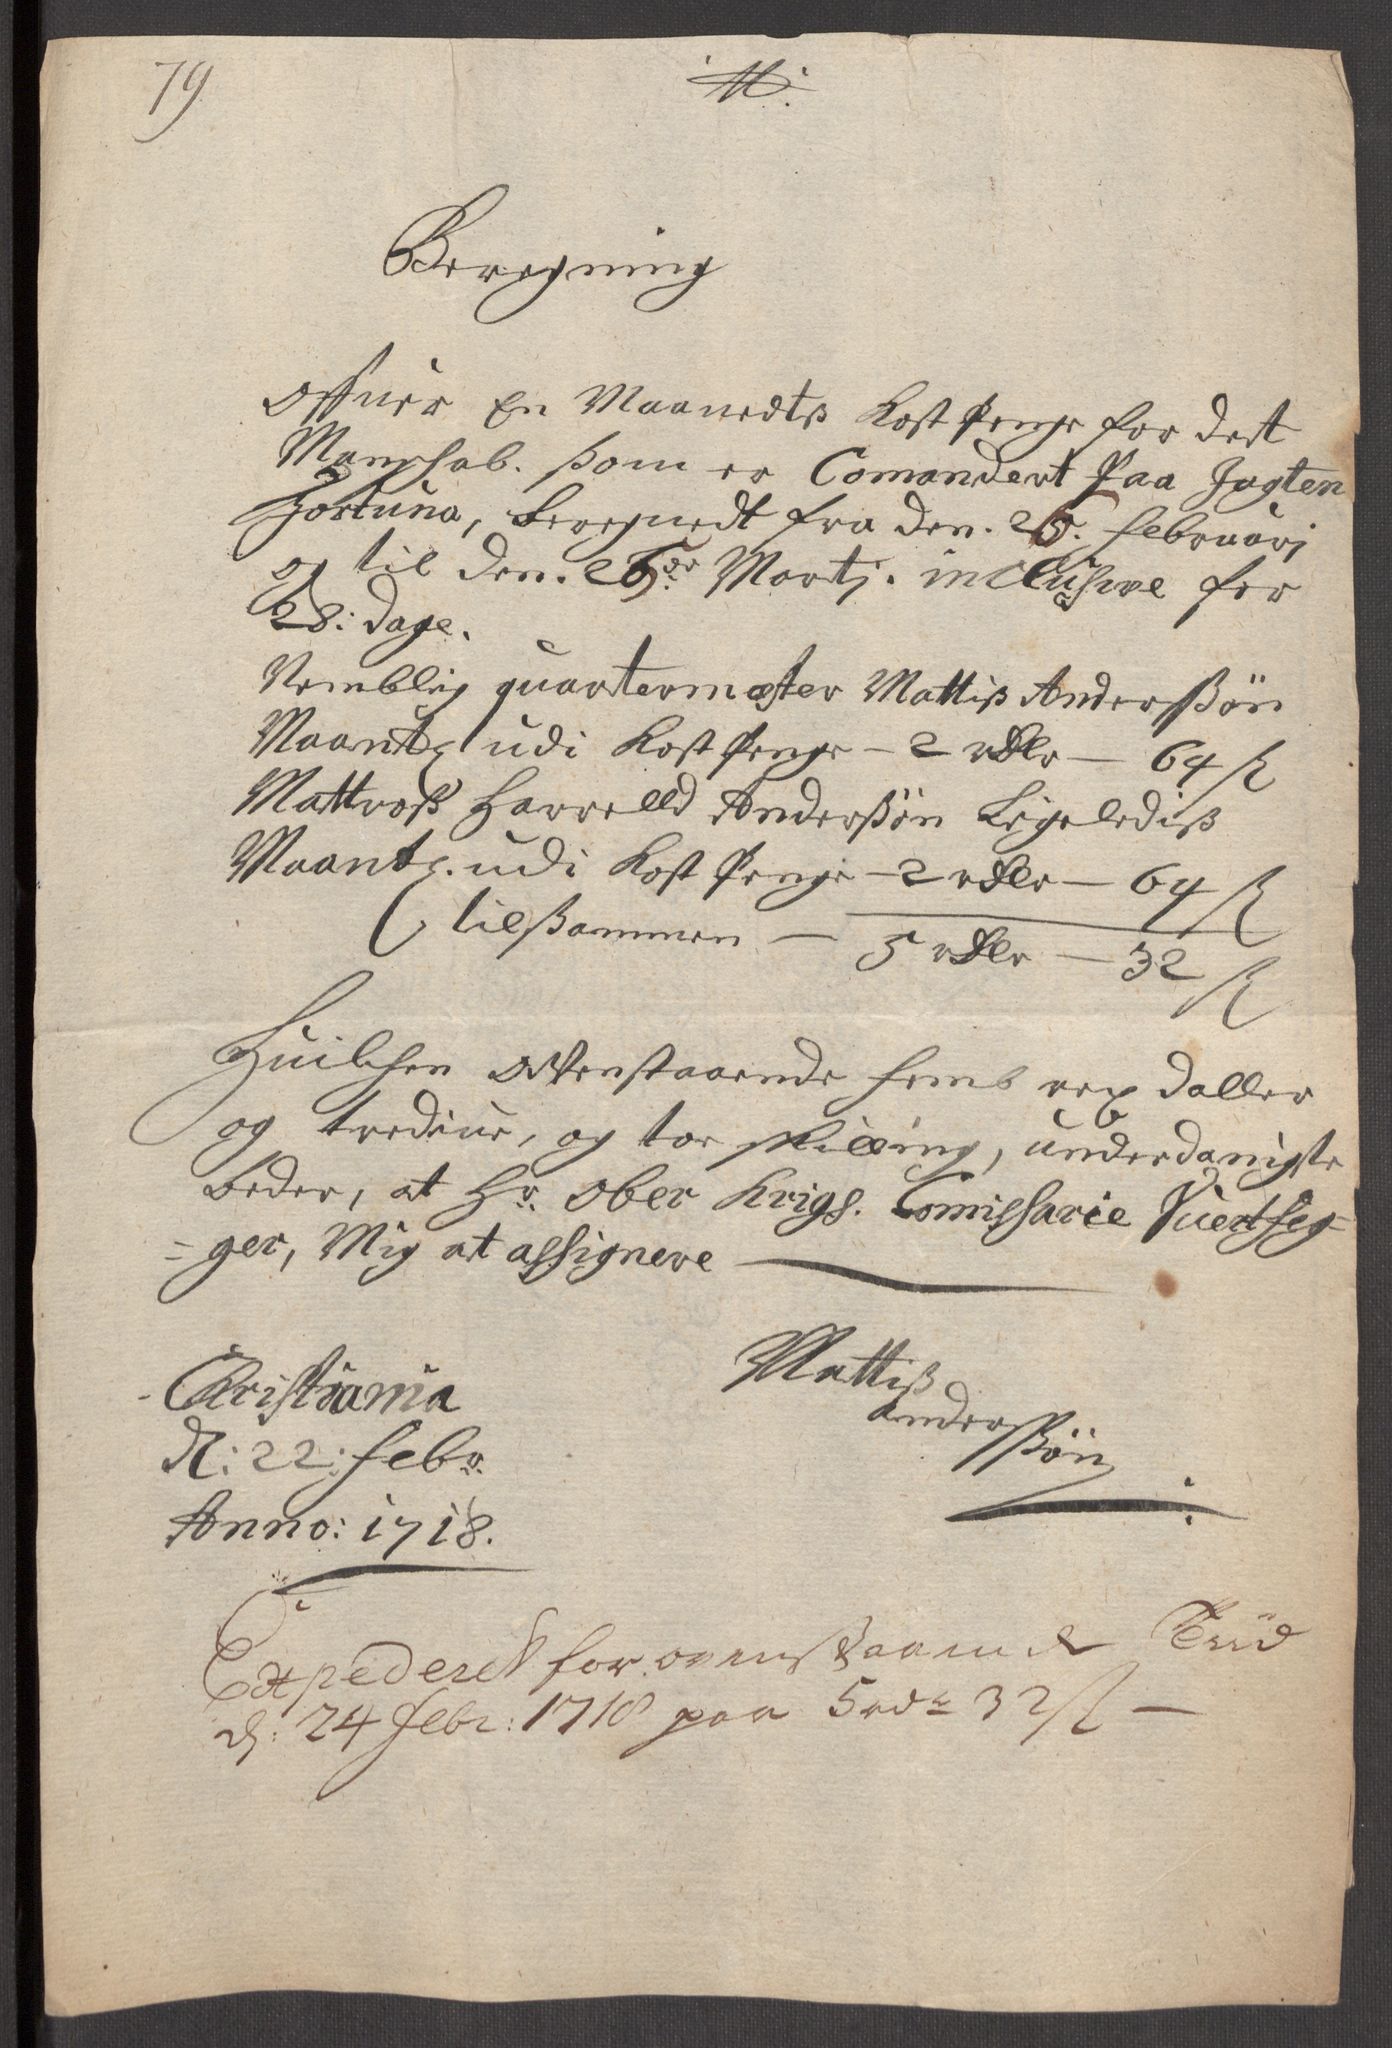 79
M.
Beregning
offuer En Maanedtß Kost Penge for dest
Manskab. ßom er Comandert Paa Jagten
Fortuna, beregnedt fra den. 26. februarj
og til den. 25de Martj. inclusive for
28: Dage.
Nemblig quartermæster Mattiß Anderßøn
Maantl udi Kost Penge – 2 rdlr – 64 ß
Mattroß Harrelld Anderßøn Ligelediß
Maantl. udi Kost Penge – 2 rdlr – 64 ß
tilßammen – 5 rdlr – 32 ß
Huilchen ofvenstaaende femb rex daller
og tredive, og toe skilling, underdanigste
beder, at Hr. Ober Krigs. Comissarie
ger, Mig at assignere
Christiania
d: 22: febr.
Anno: 1718.
Mattiß
Anderß
ßøn
Expederet for ovenstaaende Tiid
d: 24 Febr: 1718 paa 5 rdr 32 ß –